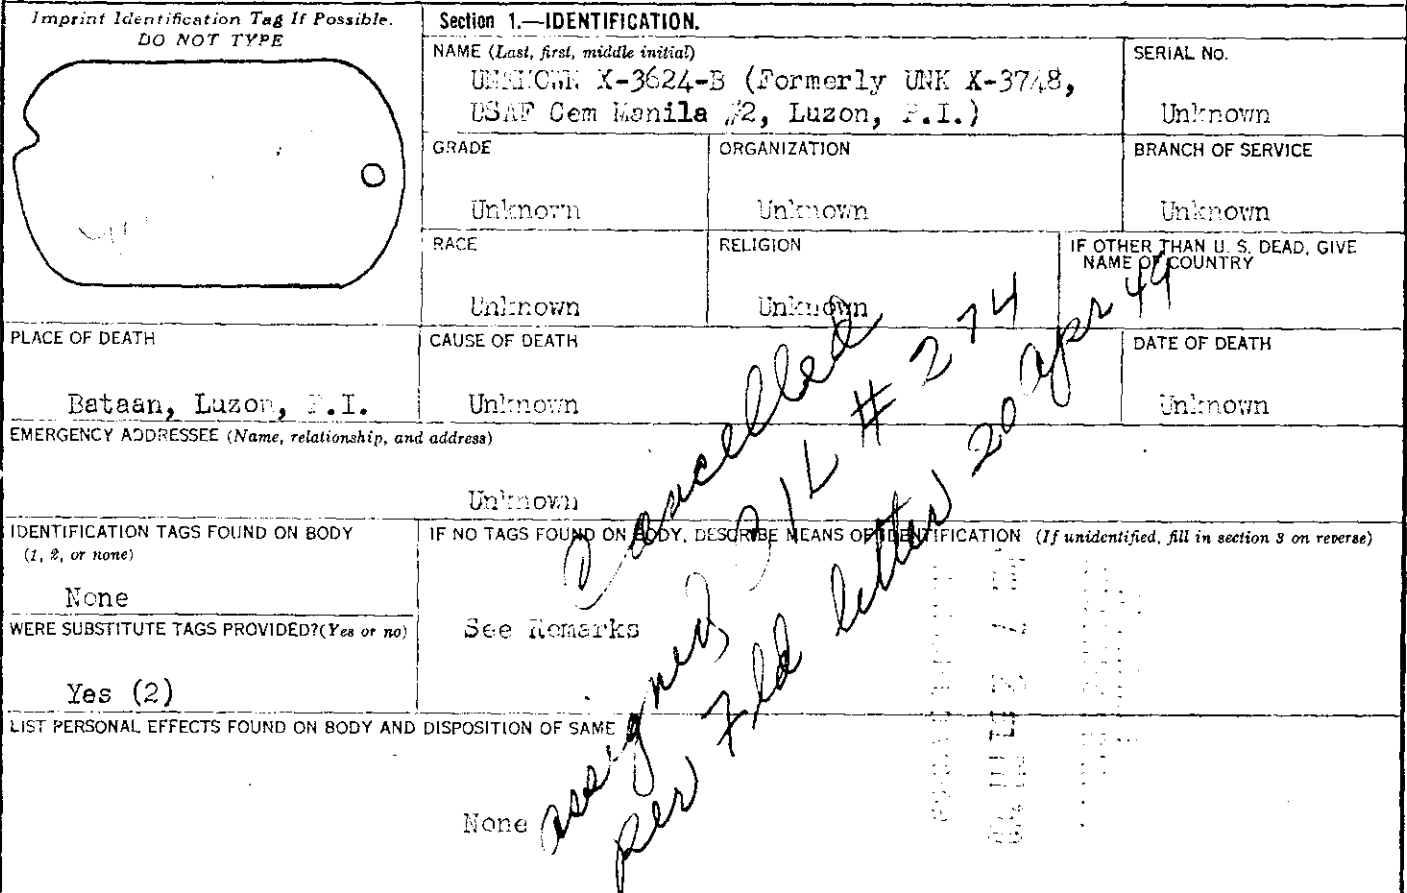 Imprint Identification Tag If Possible.
DO NOT TYPE
Section 1.—IDENTIFICATION.
NAME (Last, first, middle initial)
UNKNOWN X-3624-B (Formerly UNK X-3748,
USAF Cem Manila #2, Luzon, P.I.)
SERIAL No.
Unknown
GRADE
Unknown
ORGANIZATION
Unknown
BRANCH OF SERVICE
Unknown
RACE
Unknown
RELIGION
Unknown
IF OTHER THAN U. S. DEAD, GIVE
NAME OF COUNTRY
PLACE OF DEATH
Bataan, Luzon, P.I.
CAUSE OF DEATH
Unknown
DATE OF DEATH
Unknown
EMERGENCY ADDRESSEE (Name, relationship, and address)
Unknown
IDENTIFICATION TAGS FOUND ON BODY
(1, 2, or none)
None
IF NO TAGS FOUND ON BODY, DESCRIBE MEANS OF IDENTIFICATION (If unidentified, fill in section 3 on reverse)
See Remarks
WERE SUBSTITUTE TAGS PROVIDED?(Yes or no)
Yes (2)
LIST PERSONAL EFFECTS FOUND ON BODY AND DISPOSITION OF SAME
None
Cancelled
assigned # 274
per Fld letter 20 apr 49